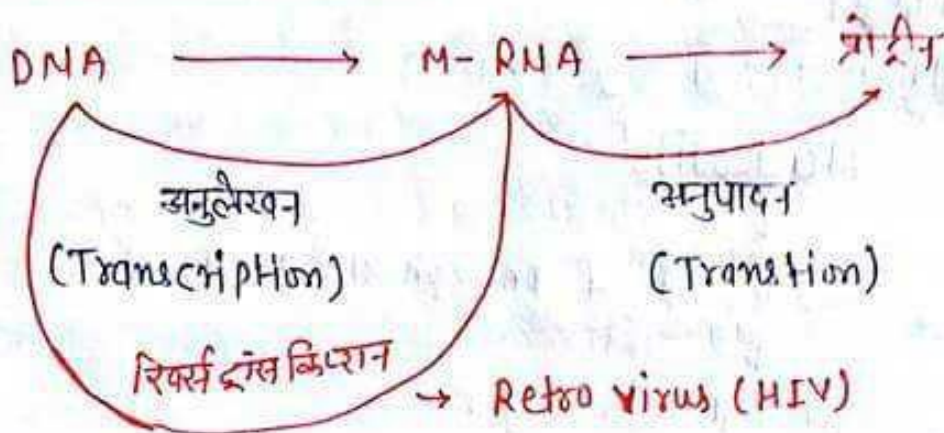 DNA → M-RNA → प्रोटीन
अनुलेखन अनुपादन
(Transcription) (Transtion)
रिवर्स ट्रांसक्रिप्शन → Retro virus (HIV)